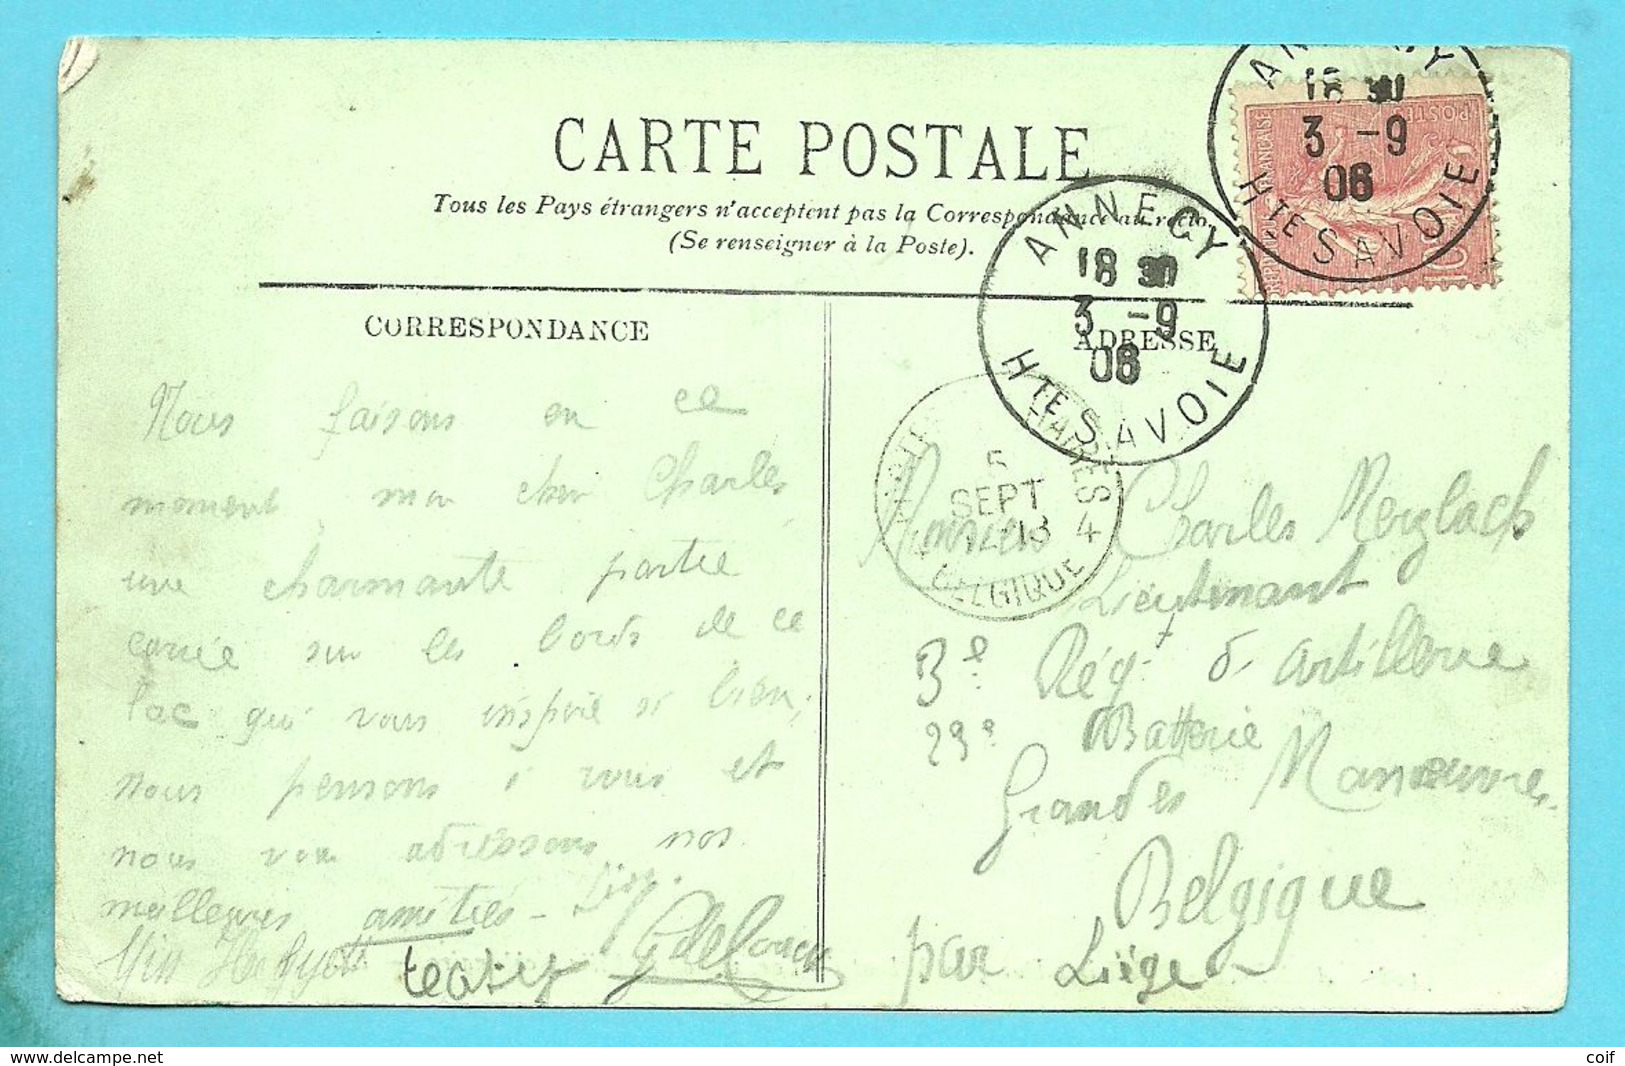 CARTE POSTALE
Tous les Pays étrangers n'acceptent pas la Correspondance au recto.
(Se renseigner à la Poste).
ANNECY
18 30
3 -9
06
Hte SAVOIE
ANNECY
18 30
3 -9
06
Hte SAVOIE
POSTES
FRANÇAISE
10
CORRESPONDANCE
Nous faisons en ce
moment, mon cher Charles
une charmante partie
carrée sur les bords de ce
lac qui vous inspire si bien;
nous pensons à vous et
nous vous adressons nos
meilleures amitiés -
ADRESSE
5
SEPT
13 4
BELGIQUE
Monsieur Charles
Lieutenant
3e Régt d'artillerie
29e Batterie
Grandes Manoeuvres
Belgique
par Liège
Download from www.delcampe.net
coif